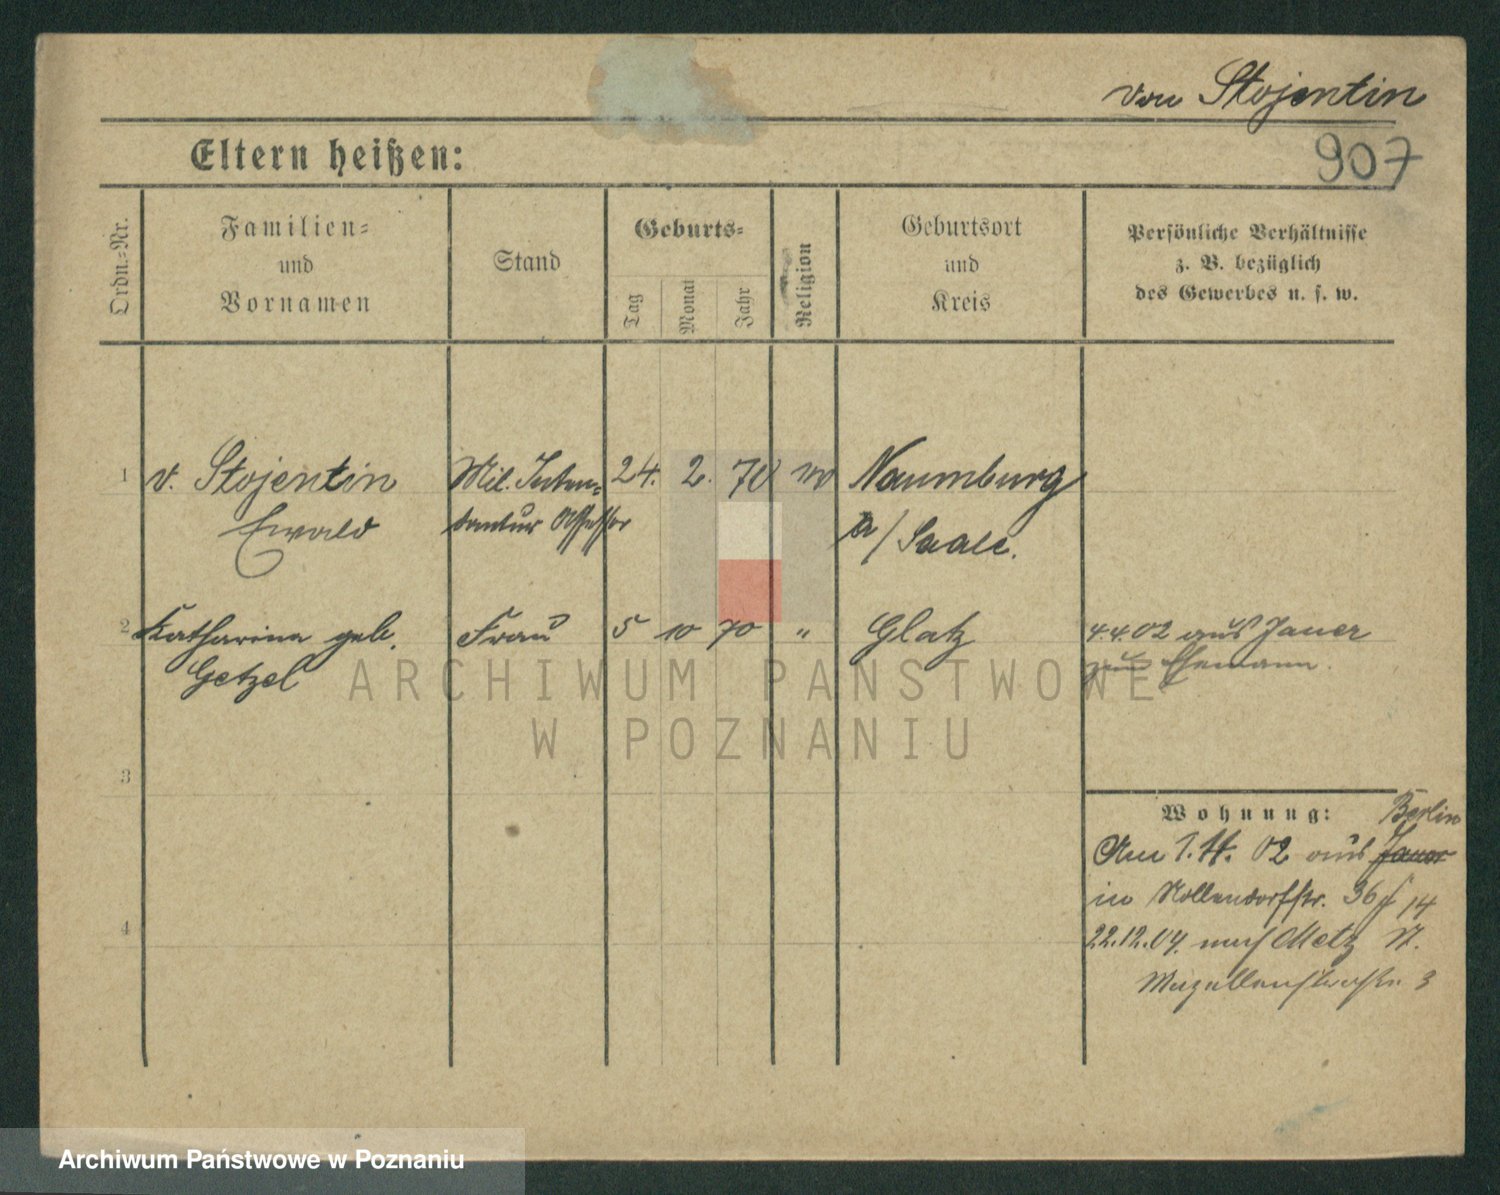 von Stojentin
Eltern heißen:
907
Ordn.-Nr.
Familien-
und
Vornamen
Stand
Geburts-
Tag
Monat
Jahr
Religion
Geburtsort
und
Kreis
Persönliche Verhältnisse
z. B. bezüglich
des Gewerbes u. s. w.
1 v. Stojentin Mil. Inten- 24. 2. 70 Naumburg
Ewald dantur Assessor a/Saale.
2 Katharina geb. Frau 5 10 70 " Glatz 4.4.02 aus Jauer
Getzel zum Ehemann.
ARCHIWUM PAŃSTWOWE
W POZNANIU
3
Wohnung: Berlin
Am 1.4. 02 aus Jauer
in Nollendorfstr. 36 14
4 22.12.04. nach Metz
3
Archiwum Państwowe w Poznaniu